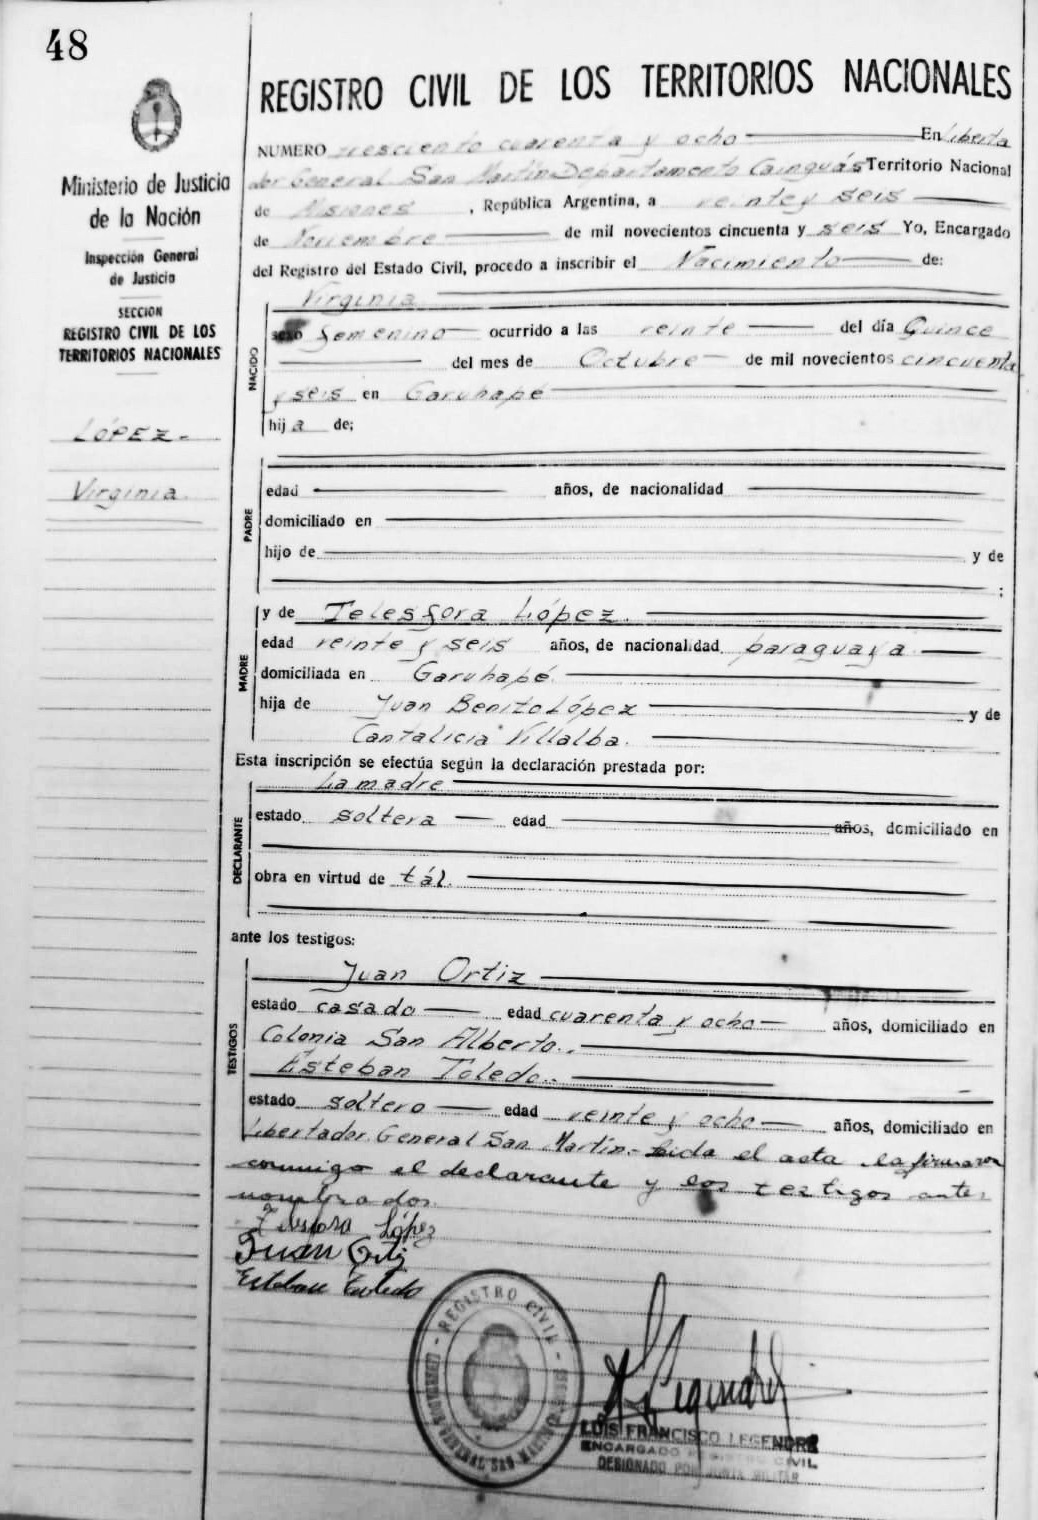 48
REGISTRO CIVIL DE LOS TERRITORIOS NACIONALES
Ministerio de Justicia
de la Nación
Inspección General
de Justicia
SECCION
REGISTRO CIVIL DE LOS
TERRITORIOS NACIONALES
LÓPEZ.-
Virginia.
NUMERO tresciento cuarenta y ocho En Liberta
dor General San Martín Departamento Cainguás Territorio Nacional
de Misiones, República Argentina, a veinte y seis
de Noviembre de mil novecientos cincuenta y seis Yo, Encargado
del Registro del Estado Civil, procedo a inscribir el Nacimiento de:
NACIDO
Virginia
sexo femenino ocurrido a las veinte del día Quince
del mes de Octubre de mil novecientos cincuenta
y seis en Garuhapé
hija de;
PADRE
edad años, de nacionalidad
domiciliado en
hijo de y de
;
MADRE
y de Telesfora López.
edad veinte y seis años, de nacionalidad paraguaya.
domiciliada en Garuhapé.
hija de Juan Benito López y de
Cantalicia Villalba.
Esta inscripción se efectúa según la declaración prestada por:
DECLARANTE
La madre
estado soltera edad años, domiciliado en
obra en virtud de tál.
ante los testigos:
TESTIGOS
Juan Ortiz
estado casado edad cuarenta y ocho años, domiciliado en
Colonia San Alberto..
Esteban Toledo..
estado soltero edad veinte y ocho años, domiciliado en
Libertador General San Martín.- Leida el acta la firmaron
conmigo el declarante y los testigos ante
nombrados.
Telesfora López
Juan Ortiz
Esteban Toledo
REGISTRO CIVIL
LIBERTADOR GENERAL SAN MARTIN
Legendre
LUIS FRANCISCO LEGENDRE
ENCARGADO REGISTRO CIVIL
DESIGNADO POR JUNTA MILITAR